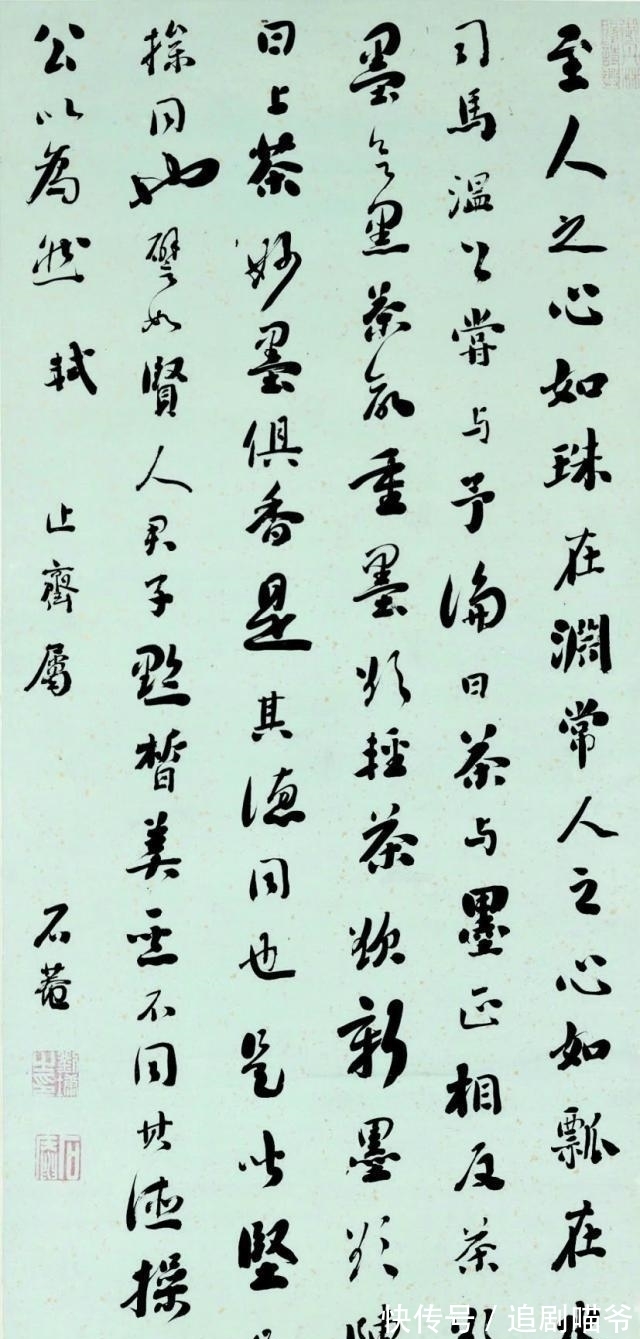 至人之心如珠在淵常人之心如瓢在
司馬温公嘗与予論曰茶与墨正相反茶
墨欲黑茶欲重墨欲輕茶欲新墨欲
曰上茶妙墨俱香是其德同也是皆堅
操同也譬如賢人君子黔皙美惡不同其德操
公以為然 軾 止齋屬 石菴
快传号 / 追剧喵爷